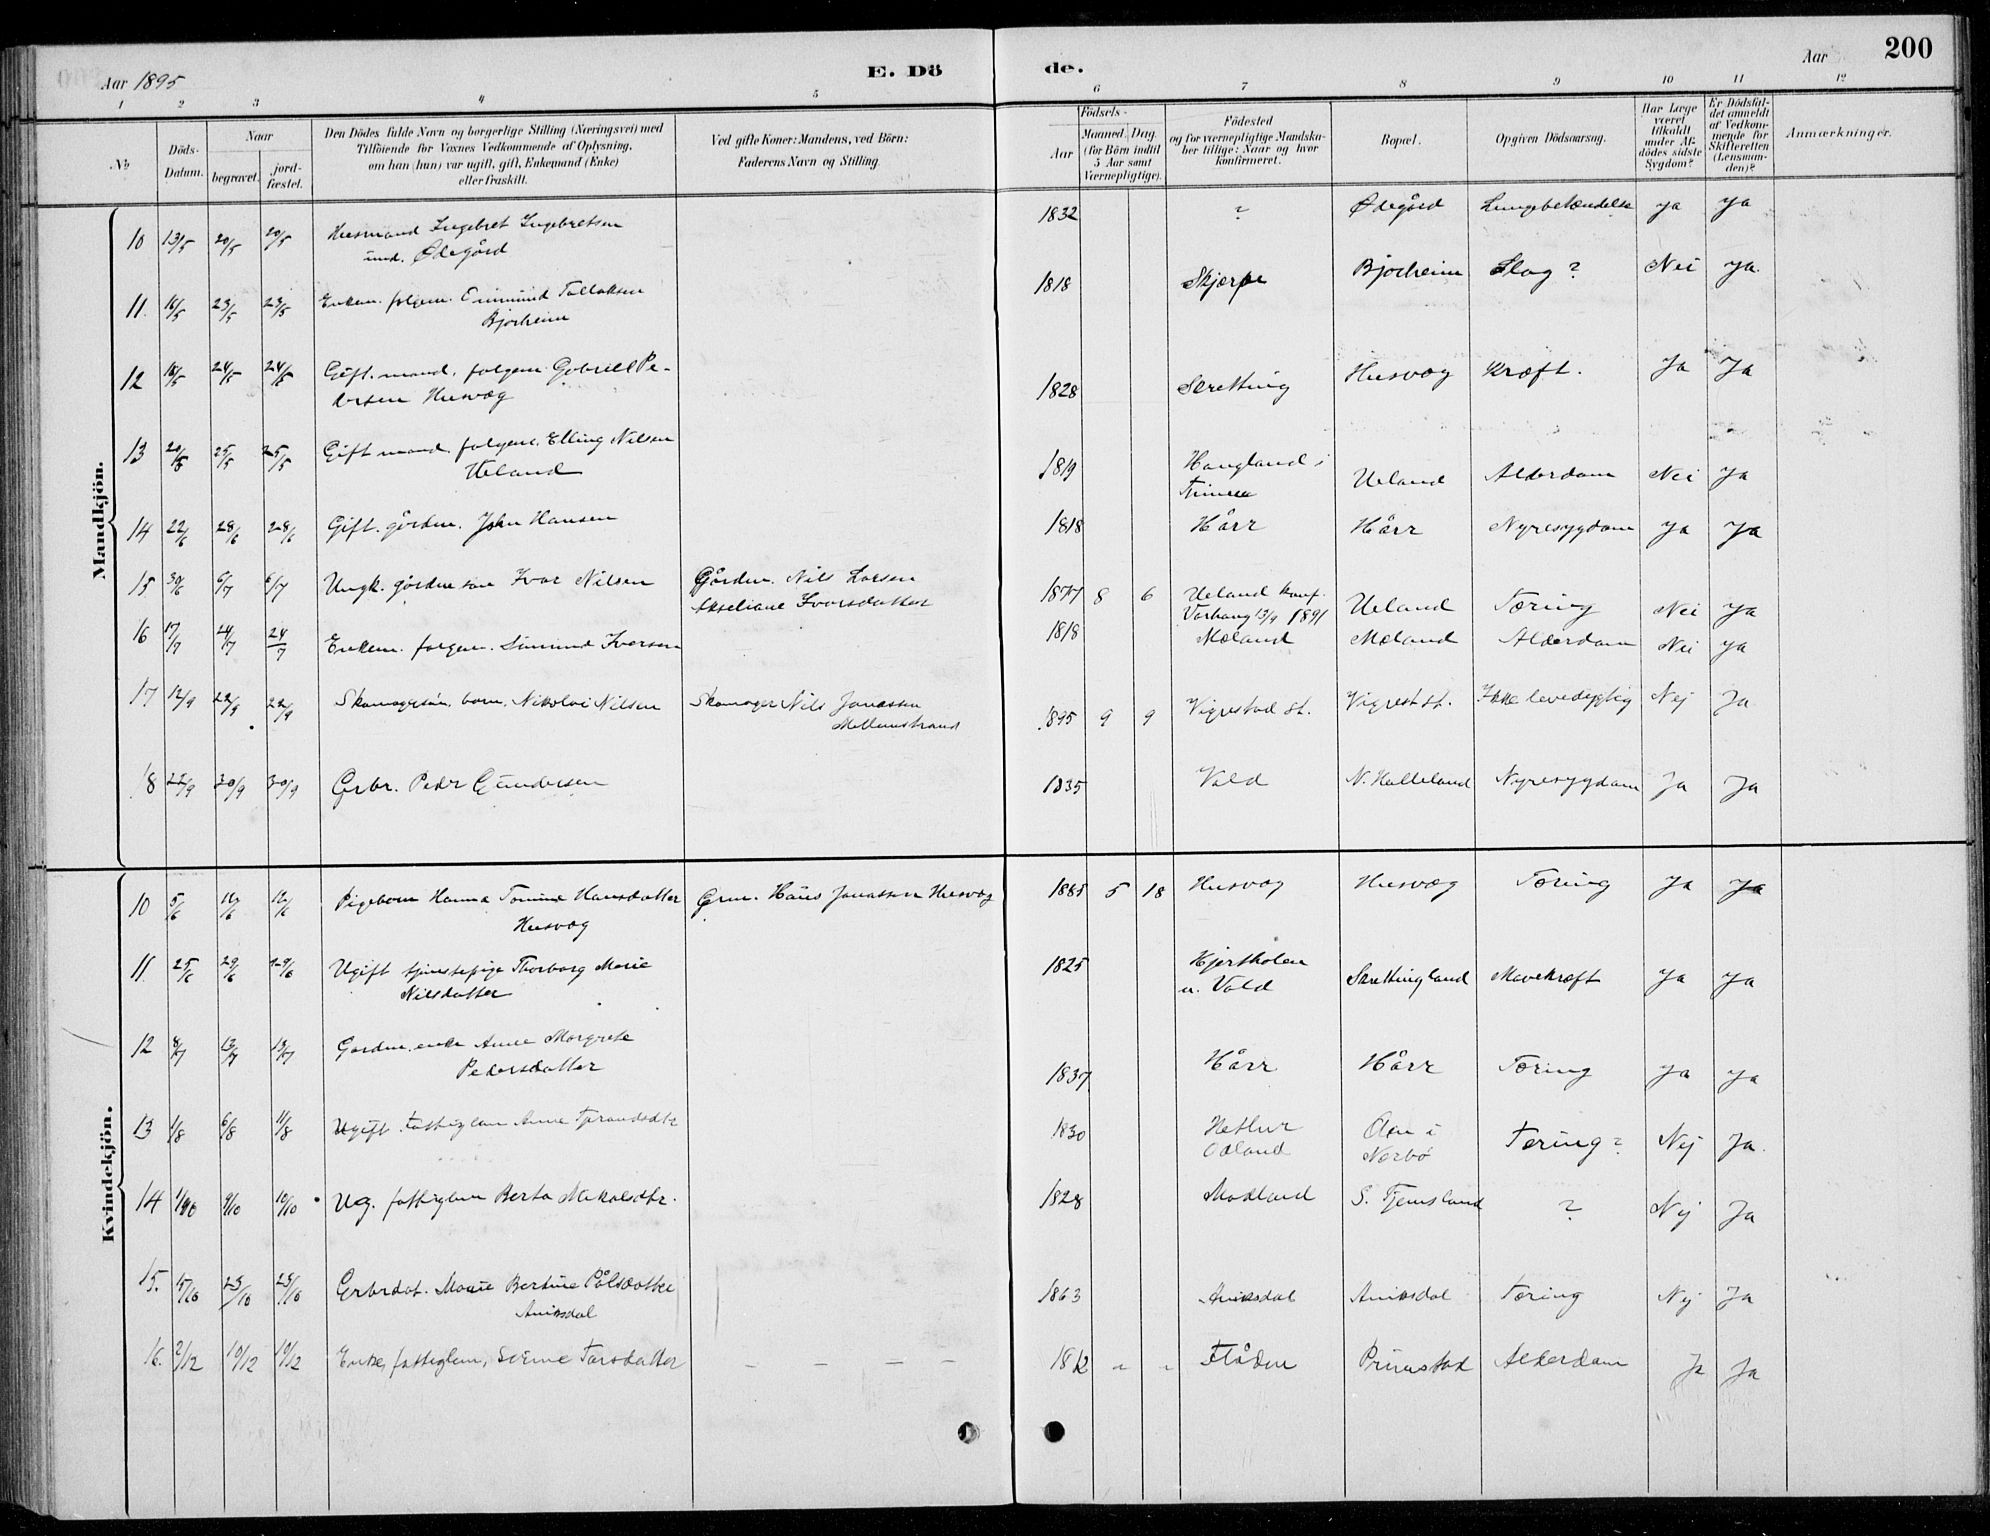 Aar 1895
E. Dö
de.
Aar
200
1 2 3 4 5 6 7 8 9 10 11 12
No
Döds-Datum.
Naar
begravet.
jord-fæstet.
Den Dödes fulde Navn og borgerlige Stilling (Næringsvei) med
Tilföiende for Voxnes Vedkommende af Oplysning,
om han (hun) var ugift, gift, Enkemand (Enke)
eller fraskilt.
Ved gifte Koner: Mandens, ved Börn:
Faderens Navn og Stilling.
Födsels-
Aar
Maaned. Dag.
(for Börn indtil
5 Aar samt
Værnepligtige).
Födested
og for værnepligtige Mandska-
ber tillige: Naar og hvor
konfirmeret.
Bopæl.
Opgiven Dödsaarsag.
Har Læge
været
tilkaldt
under Af-
dödes sidste
Sygdom?
Er Dödsfal-
det anmeldt
af Vedkom-
mende for
Skifteretten
(Lensman-
den)?
Anmærkninger.
Mandkjön.
10 13/5 20/5 20/5 Husmand Ingebret Ingebretsen 1832 ? Ødegård Lungebetændelse ja ja
und. Ødegård
11. 16/5 23/5 23/5 Enkem. folgem. Tallaksen 1818 Skjerpe Bjorheim Slag? Nei ja.
Bjorheim
12 18/5 24/5 24/5 Gift. mand. folgem. Gabriel Pe- 1828 Skretting Husvog Kræft. Ja Ja
dersen Husvæg
13 20/5 25/5 25/5 Gift mand. folgem. Elling Nilsen 1819 Haugland i Ueland Alderdom Nei ja
Ueland
14 22/6 28/6 28/6 Gift. gårdm. John Hansen 1818 Hårr Hårr Nyresygdom ja ja
15 30/6 6/7 6/7 Ungk. gårdmsøn Ivar Nilsen Gårdm. Nils Larsen 1877 8 6 Ueland konf. Ueland Tæring Nei ja
Akseliane Ivarsdatter Varhaug 13/9 1891
16 17/7 24/7 24/7 Enkem. folgem. Simund Iversen 1818 Mæland Mæland Alderdom Nei ja
17 12/9 22/9 22/9 Skomagersøn, barn, Nikolai Nilsen Skomager Nils Jonassen 1895 9 9 Vigrestad st. Vigrest st. Ikke levedygtig Nej Ja
Mellemstrand
18 22/9 30/9 30/9 Grbr. Peder Gundersen 1835 Vold N. Halleland Nyresygdom Ja Ja
Kvindekjön.
10 5/6 12/6 12/6 Pigebarn Hanna Tomine Hansdatter Grm. Hans Jonassen Husvæg 1885 5 18 Husvæg Husvæg Tæring ja ja
Husvæg
11 25/6 29/6 29/6 Ugift tjenestepige Thorborg Marie 1825 Hjortholen Skrettingland Mavekræft ja ja
Nilsdatter u. Vold
12 8/7 13/7 13/7 Gardm. enke Anne Margrete 1837 Hårr Hårr Tæring ja ja
Pedersdatter
13 1/8 6/8 11/8 Ugift fattiglem Anne Tjerandsdtr 1830 Hetlur i Tæring? Nej Ja.
Odland Nærbø
14 1/10 9/10 10/10 Ug. fattiglem Berta Mikalsdtr. 1828 Modland S. Tjemsland ? Nej Ja
15. 15/10 23/10 23/10 Grbrdat. Marie Bertine Pålsdatter 1863 Aniksdal Aniksdal Tæring Nej Ja
Aniksdal
16. 2/12 10/12 10/12 Enke, fattiglem, Serine Tarsdatter — — — — 1812 " " Flåden Prinstad Alderdom Ja Ja